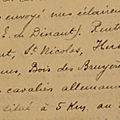 envoyé mes éclaireu
E. de Dinant). Rent
St Nicolas, Her
Bois des Bruyère
cavaliers allemand
situé à 5 Km. au